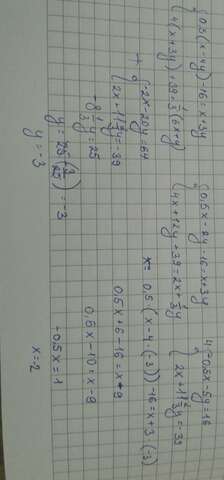 {0,5(x-4y)-16=x+3y
4(x+3y)+39=1/3(6x+y)
{0,5x-2y-16=x+3y
4x+12y+39=2x+1/3y
4·{-0,5x-5y=16
2x+11 2/3y=-39
+{-2x-20y=64
2x+11 2/3y=-39
-8 1/3y=25
y=25·(-3/25)=-3
y=-3
x= 0,5(x-4·(-3))-16=x+3·(-3)
0,5x+6-16=x-9
0,5x-10=x-9
-0,5x=1
x=-2